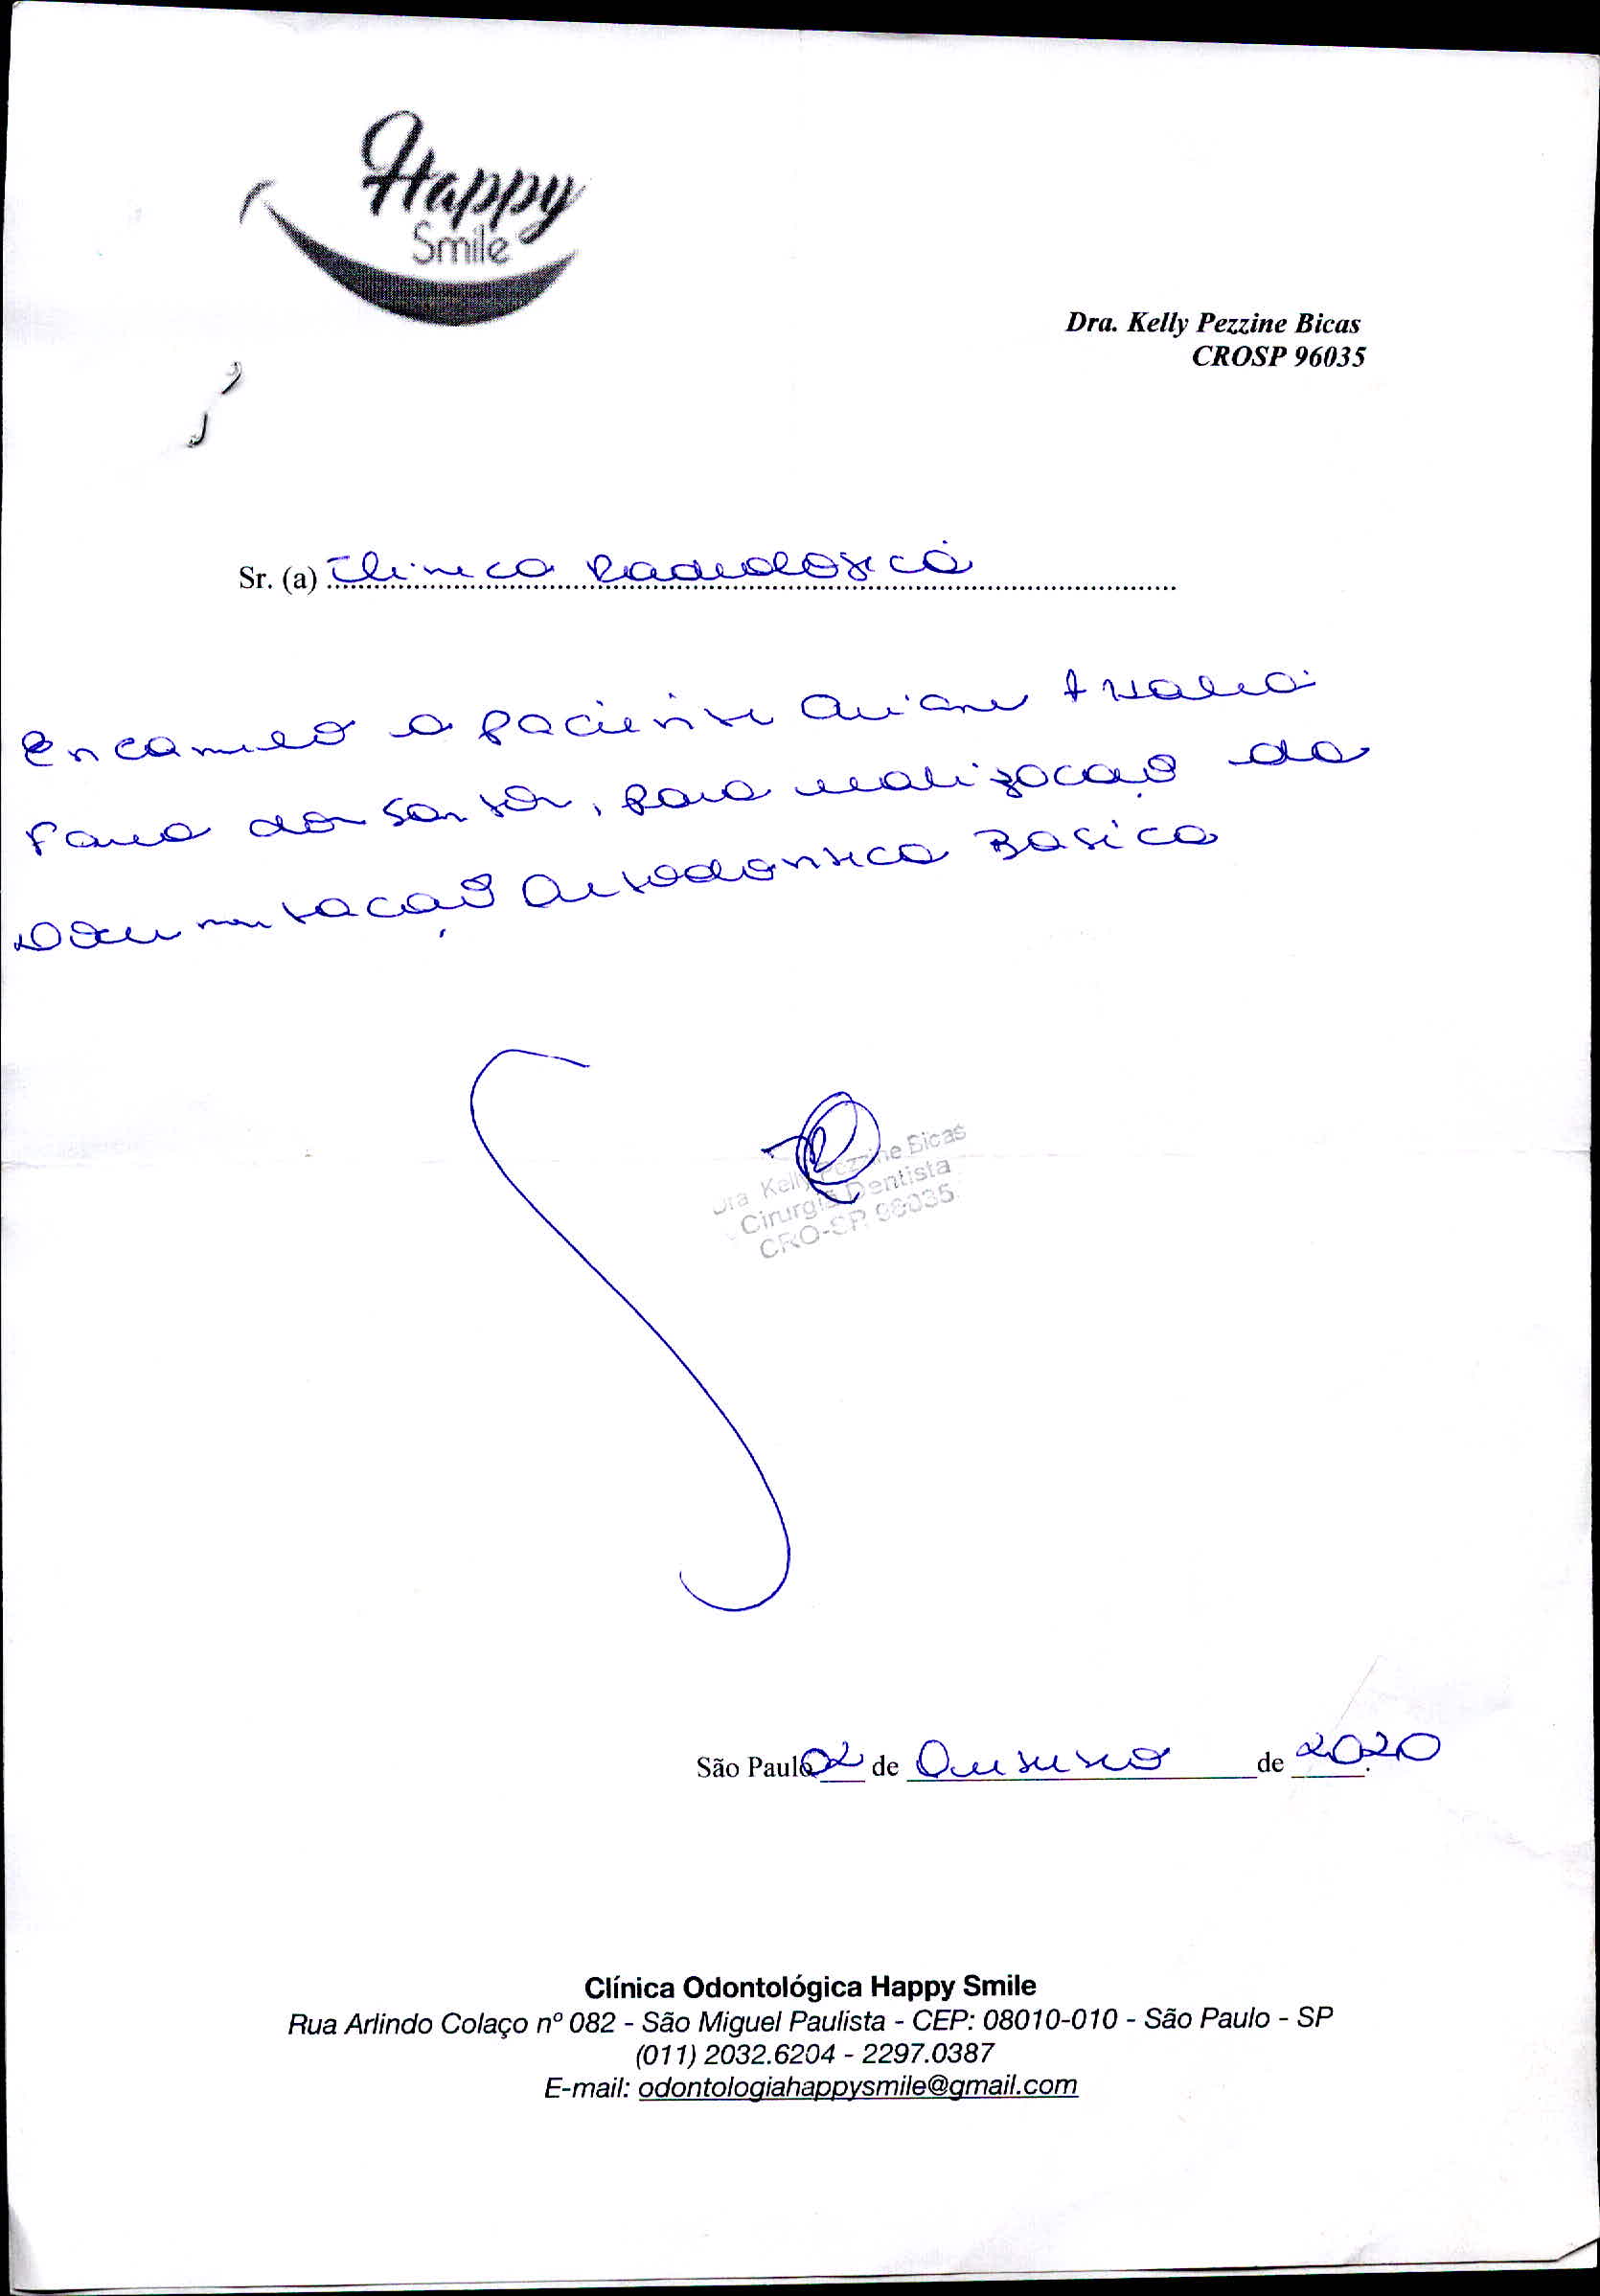 Happy
Smile
Dra. Kelly Pezzine Bicas
CROSP 96035
Sr. (a) Clinica Radiologica
Encaminho a paciente Ariane
Faria dos Santos, para realização da
Documentação Ortodontica Basica
Dra Kelly Pezzine Bicas
Cirurgiã Dentista
CRO-SP 96035
São Paulo 02 de Outubro de 2020.
Clínica Odontológica Happy Smile
Rua Arlindo Colaço nº 082 - São Miguel Paulista - CEP: 08010-010 - São Paulo - SP
(011) 2032.6204 - 2297.0387
E-mail: odontologiahappysmile@gmail.com